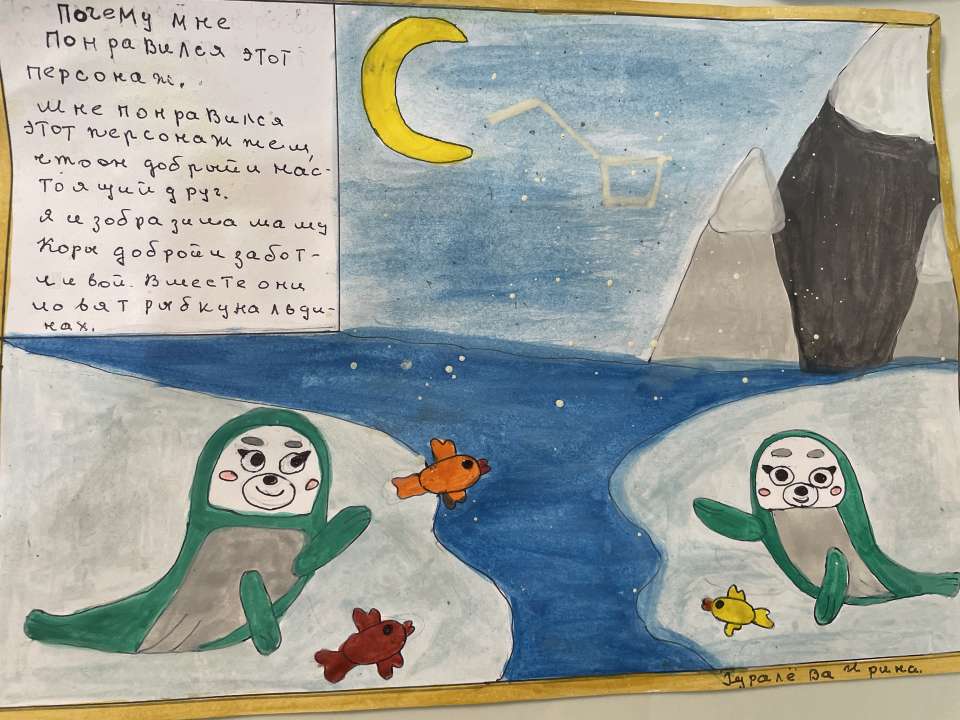 Почему мне
понравился этот
персонаж.
Мне понравился
этот персонаж тем,
что он добрый и нас-
тоящий друг.
Я изобразила маму
Коры доброй и забот-
ливой. Вместе они
ловят рыбку на льди-
нах.
Гуралёва Ирина.